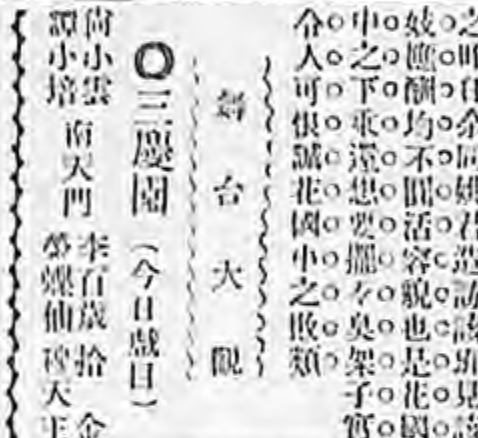 之昨日余同君造訪該班見該
妓應酬均不圓活容貌也是花國
中之下乘還想要擺々臭架子實
令人可恨誠花國中之敗類
舞台大觀
三慶園（今日戲目）
尚小雲
譚小培
南天門
李百歲
拾金